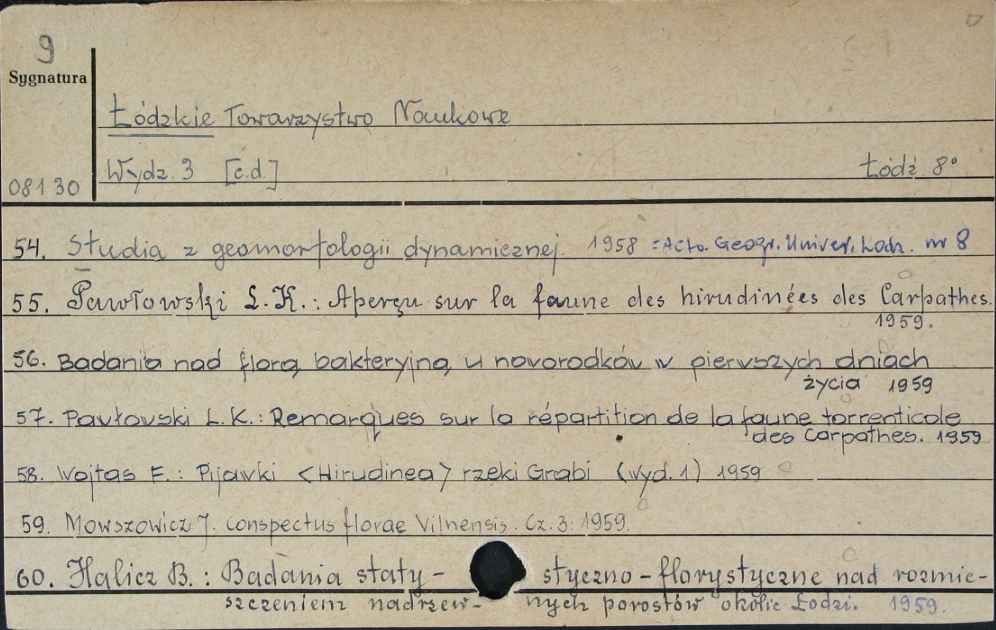 9
Sygnatura
Łódzkie Towarzystwo Naukowe
Wydz. 3 [c.d.] Łódź 8°
08130
54. Studia z geomorfologii dynamicznej. 1958 =Acta. Geogr. Univer. Lodz. nr 8
55. Pawłowski L.K.: Aperçu sur la faune des hirudinées des Carpathes.
1959.
56. Badania nad florą bakteryjną u noworodków w pierwszych dniach
życia 1959
57. Pawłowski L.K.: Remarques sur la répartition de la faune torrenticole
des Carpathes. 1959
58. Wojtas F.: Pijawki <Hirudinea> rzeki Grabi (wyd. 1) 1959
59. Mowszowicz J. Conspectus florae Vilnensis. Cz. 3. 1959.
60. Halicz B.: Badania staty- styczno-florystyczne nad rozmie-
szczeniem nadrzew- nych porostów okolic Łodzi. 1959.